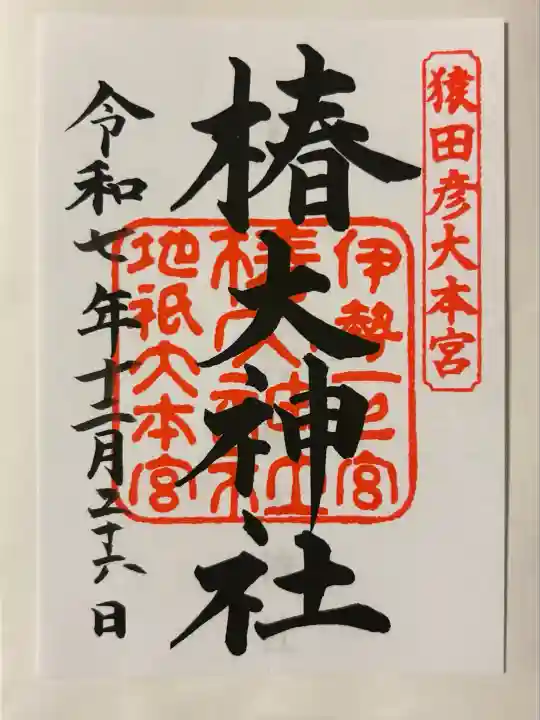 猿田彦大本宮
椿大神社
伊勢一之宮
椿大神社
地祇大本宮
令和七年十二月二十六日